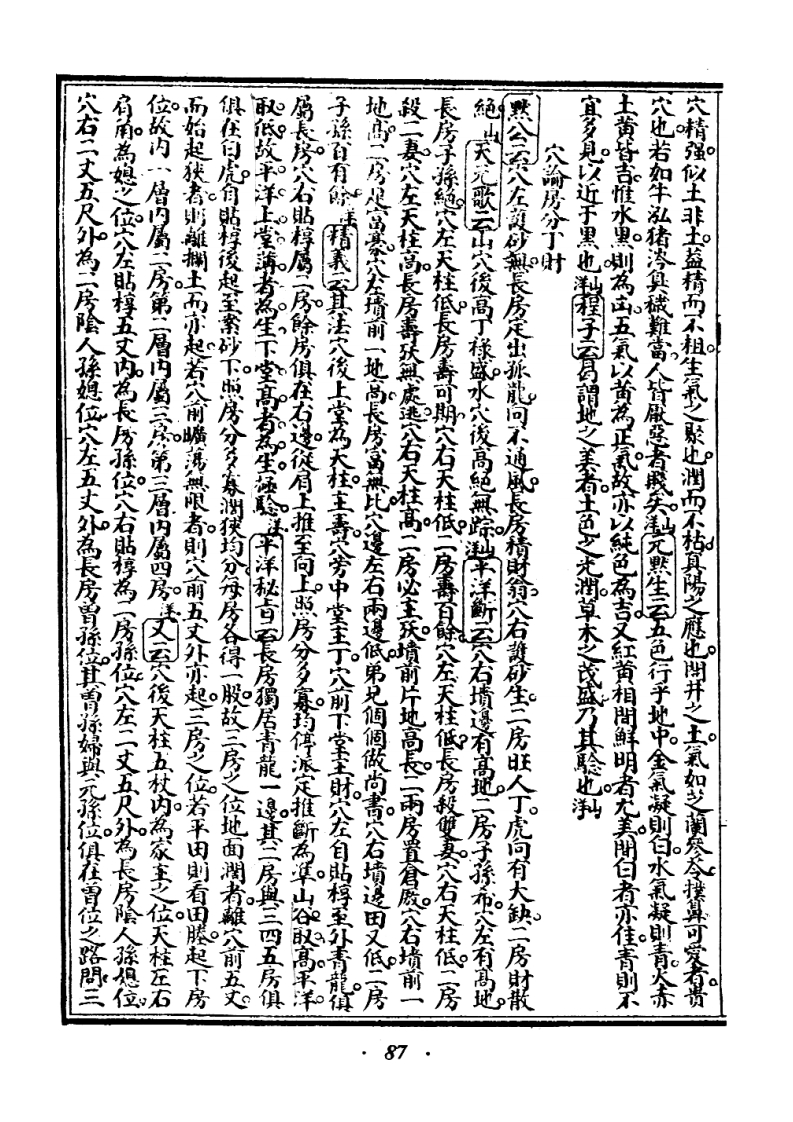 穴精强似土非土益精而不粗生氣之聚也潤而不枯真陽之應也開井之土氣如芝蘭參苓撲鼻可愛者貴
穴也若如牛泓猪涔臭穢難當人皆厭惡者賤矣洋山元默生云五色行乎地中金氣凝則白水氣凝則青火赤
土黃皆吉惟水黑則為凶五氣以黃為正氣故亦以純色為吉又紅黃相間鮮明者尤美間白者亦佳青則不
宜多見以近于黑也洋山程子云曷謂地之美者土色之光潤草木之茂盛乃其驗也洋山
穴論房分丁財
默公云穴左護砂無長房定出孤龍向不通風長房積財翁穴右護砂生二房旺人丁虎向有大缺二房財散
絕山天元歌云山穴後高丁祿盛水穴後高絕無踪洋山平洋斷云穴右墳邊有高地二房子孫布穴左有高地
長房子孫絕穴左天柱低長房壽可期穴右天柱低二房壽百餘穴左天柱低長房殺雙妻穴右天柱低二房
殺一妻穴左天柱高長房壽殀無處逃穴右天柱高二房必主殀墳前片地高長二兩房置倉廒穴右墳前一
地高二房定富豪穴左墳前一地高長房富無比穴邊左右兩邊低弟兄個個做尚書穴右墳邊田又低二房
子孫百有餘洋精義云其法穴後上堂為天柱主壽穴旁中堂主丁穴前下堂主財穴左自貼椁至外青龍俱
屬長房穴右貼椁屬二房餘房俱在右邊從肩上推至向上照房分多寡均停派定推斷為準山谷取高平洋
取低故平洋上堂溝者為生下堂高者為生極驗洋平洋秘旨云長房獨居青龍一邊其二房與三四五房俱
俱在白虎自貼椁後起至案砂下照房分多寡濶狹均分每房各得一股故三房之位地面濶者離穴前五丈
而始起狹者則離攔土而亦起若穴前曠蕩無限者則穴前五丈外亦起三房之位若平田則看田塍起下房
位故內一層內屬二房第二層內屬三房第三層內屬四房洋又云穴後天柱五杖內為家主之位天柱左右
肩角為媳之位穴左貼椁五丈內為長房孫位穴右貼椁為二房孫位穴左二丈五尺外為長房陰人孫媳位
穴右二丈五尺外為二房陰人孫媳位穴左五丈外為長房曾孫位其曾孫婦與元孫位俱在曾位之路問三
· 87 ·